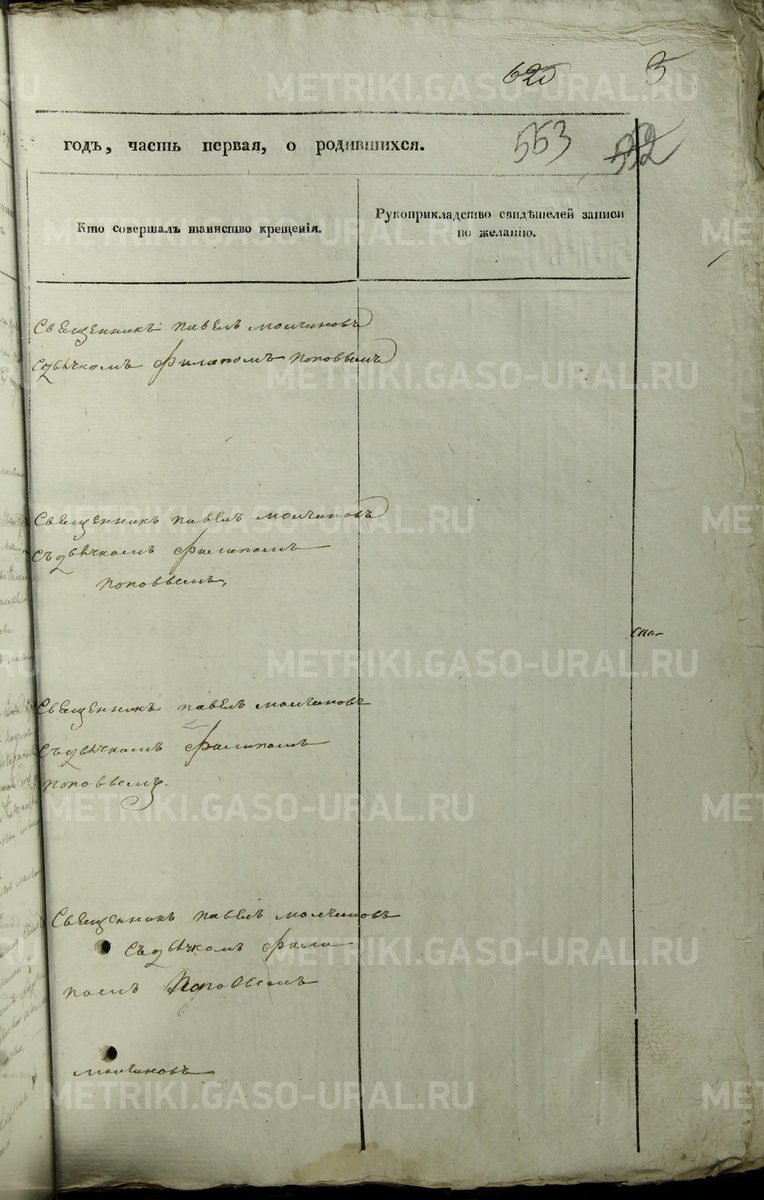 620 3
553 522
годъ, часть первая, о родившихся.
Кто совершалъ таинство крещенія.
Рукоприкладство свидѣтелей записи
по желанію.
Священникъ павелъ молчановъ
сдьячкомъ филипомъ поповвемъ
Священникъ павелъ молчановъ
съдьячкомъ филипомъ
поповвемъ
Священникъ павелъ молчановъ
съдьячкомъ филипомъ
поповвемъ.
Священникъ павелъ молчановъ
съдьячкомъ фили
помъ поповвемъ
молчановъ
METRIKI.GASO-URAL.RU